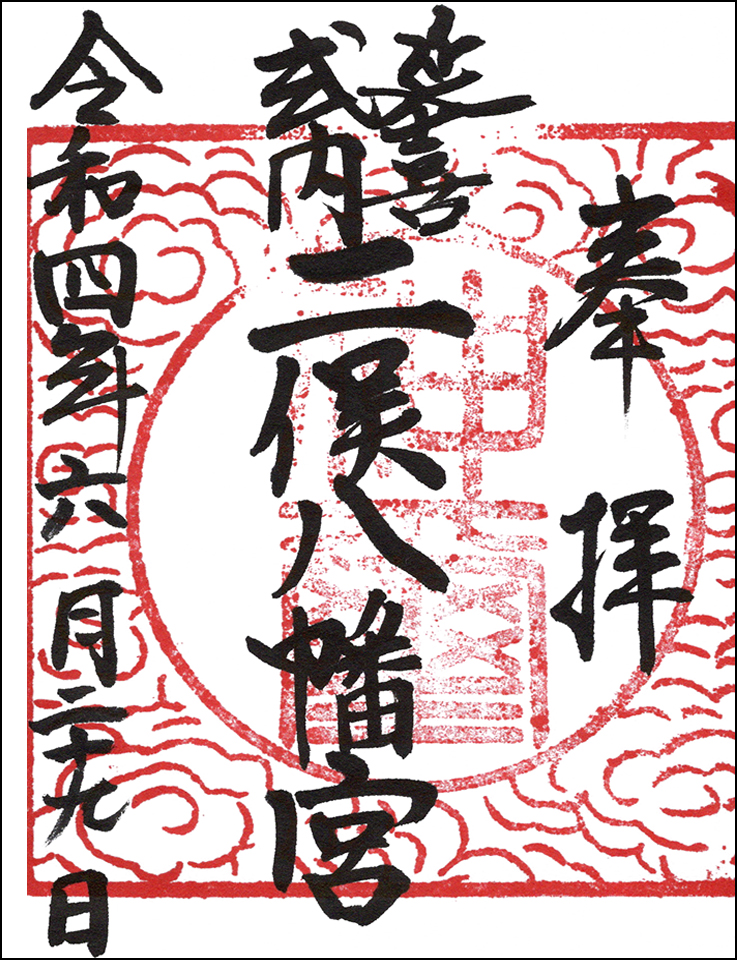 奉拝
延喜
式内
二俣八幡宮
令和四年六月二十九日